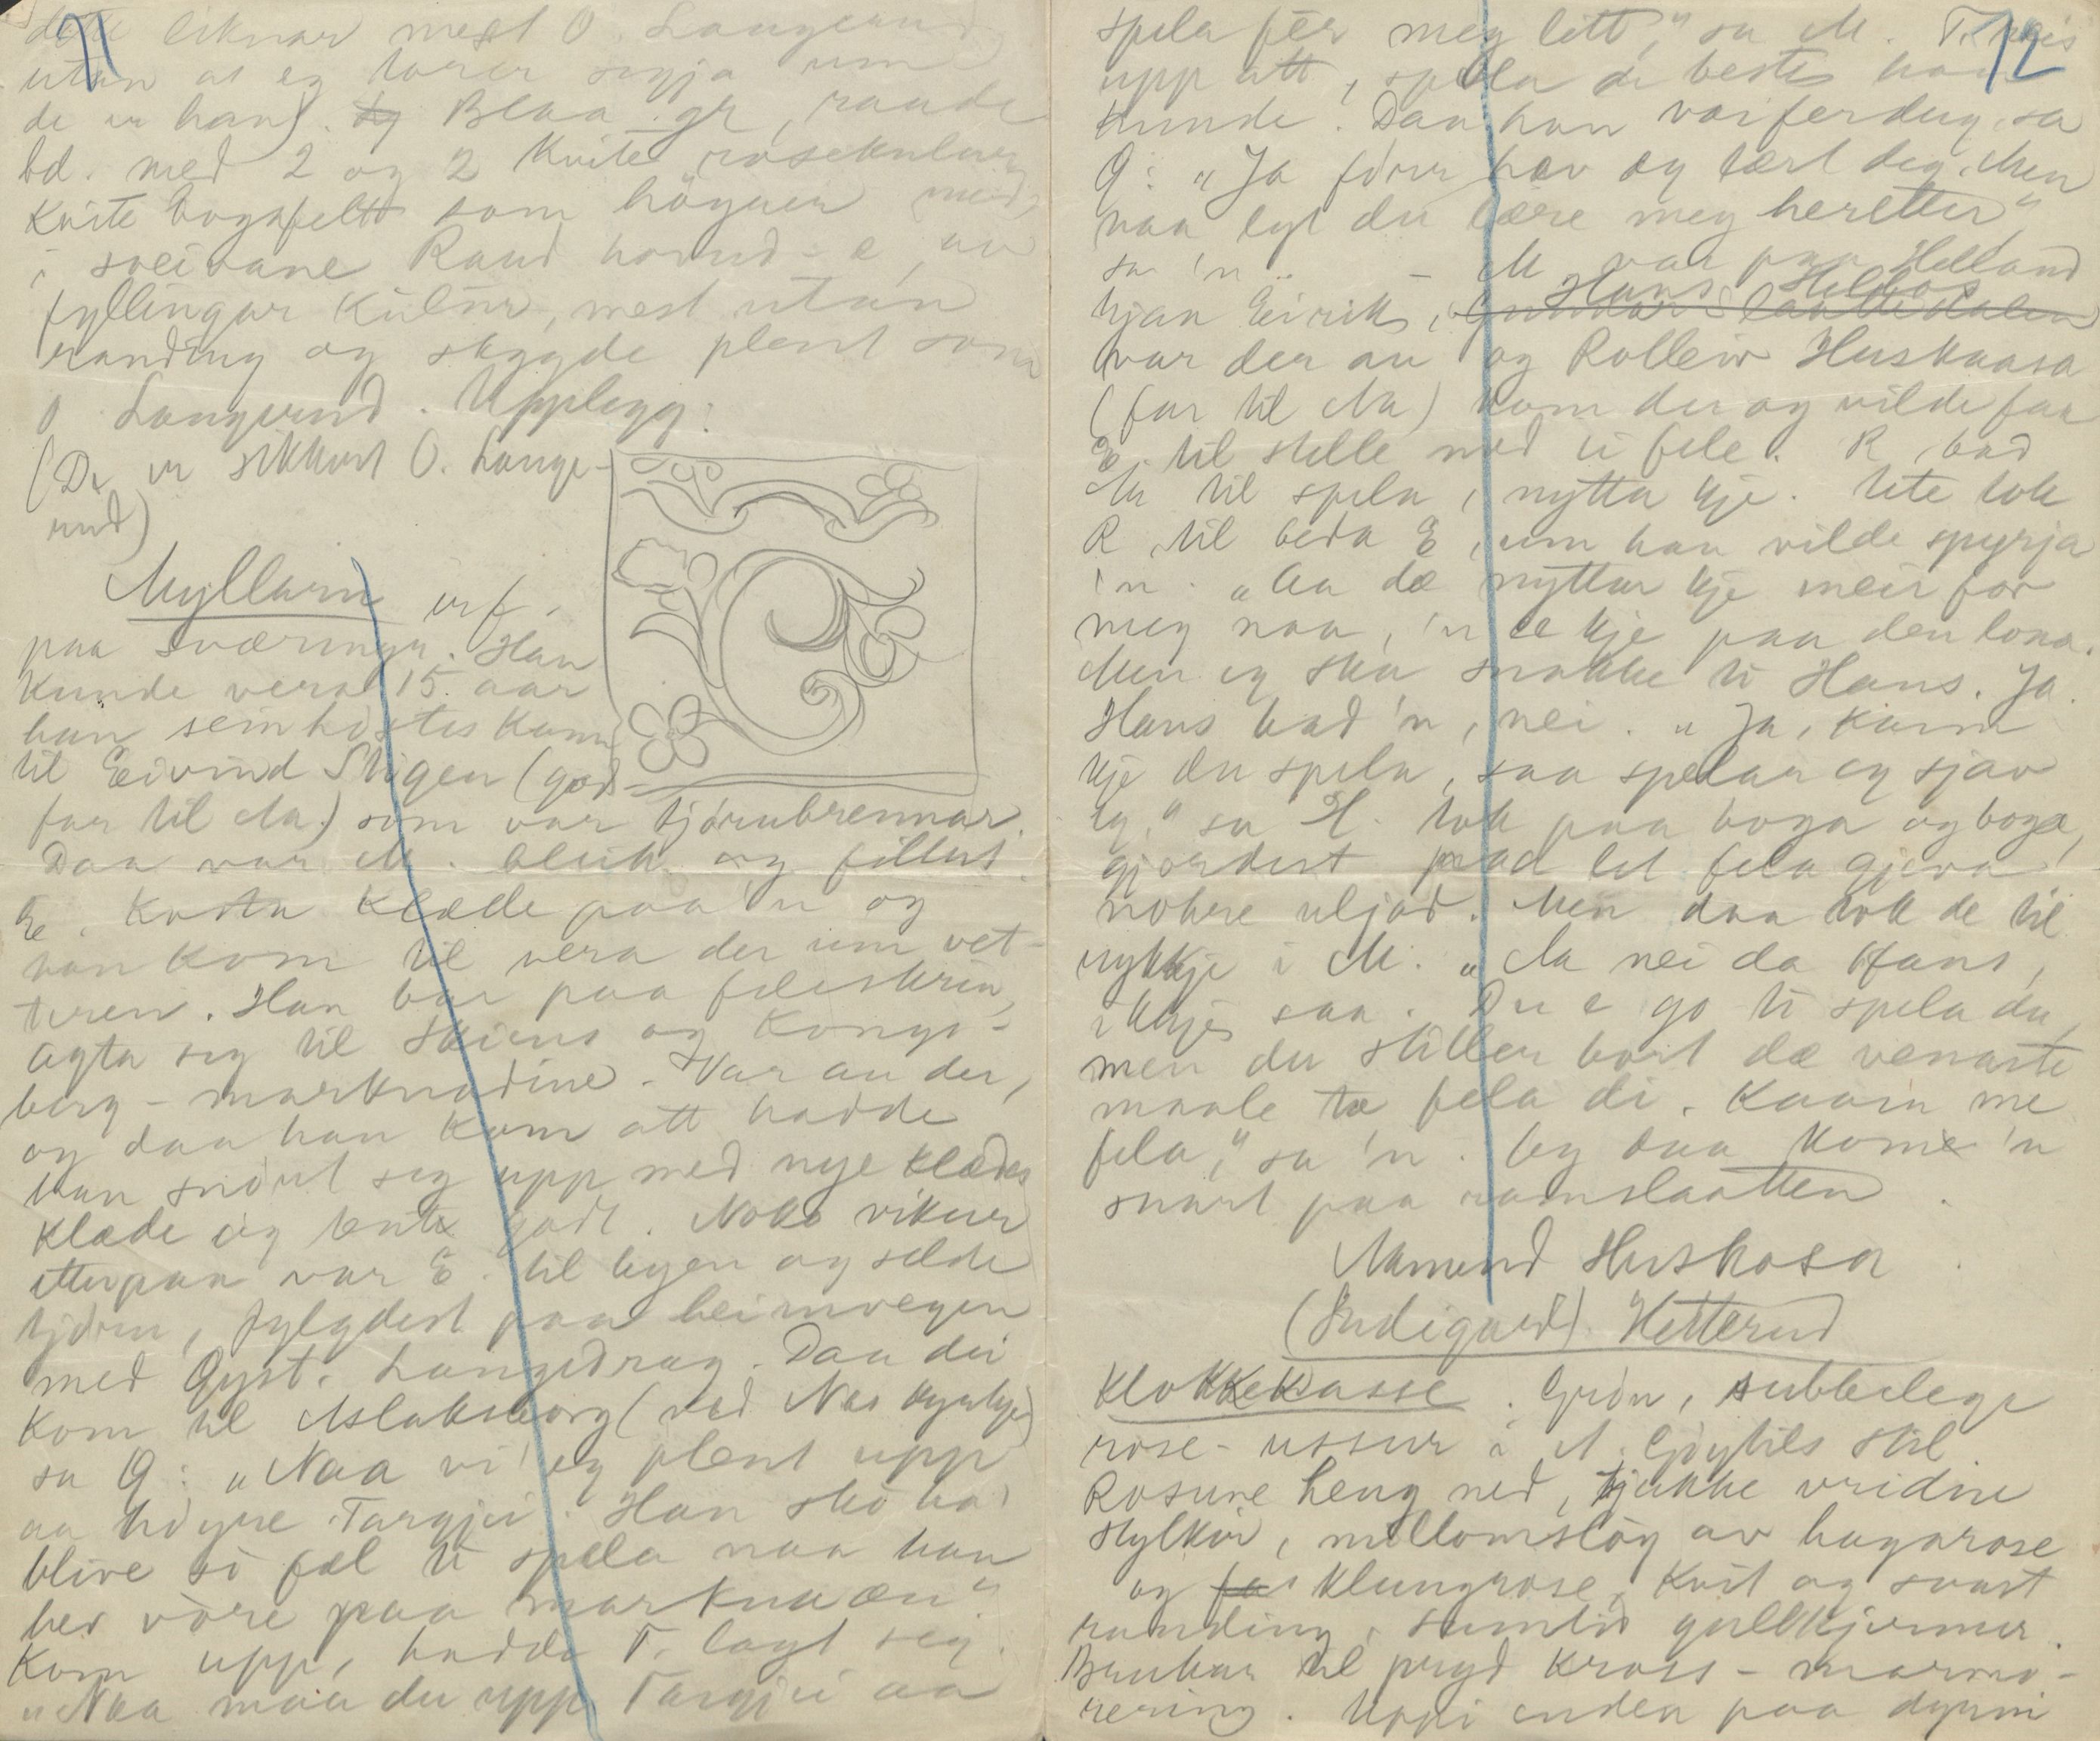 11
dette liknar mest O. Langerud
utan at eg torer segja um
de er han). Blaa gr, raude
bd. med 2 og 2 kvite rosekulur
kvite bogafelt som högner med,
i sveivane Raud hovud-e, av
fyllingar kulör, mest utan
randing og skygde plent som
O Langerud. Upplegg:
(De er sikkert O. Lange-
rud)
Myllarin
paa sværingen. Han
kunde vera 15 aar
han seinhöstes kom
til Eivind Stigen (god-
far til Aa.) som var tjørubrennar.
Daa var M. bleik og fillut.
E. kosta klæde paa 'n og
han kom til vera der um vet-
teren. Han bar paa feleskrin,
agta seg til Skiens og Kongs-
berg-marknadine. Var au der,
og daa han kom att hadde
han snört seg upp med nye klædes
klæde og tente godt. Noko vikur
etterpaa var E. til byen og selde
tjöru, fylgdest paa heimvegen
med Gyst. Langedrag. Daa dei
kom til Aslaksborg (ved Nes kyrkje)
sa G: „Naa vi' eg plent upp
aa höyre Targjei. Han sko ha'
blive so fæl ti spela naa han
hev vöre paa marknaen“
Kom upp, hadde T. lagt seg.
„Naa maa du upp Targjei aa
12
spela för meg litt," sa M. T. reis
upp att, spela de beste han
kunde. Daa han var ferdug, sa
G: „Ja förr hev eg lært deg. Men
naa lyt du lære meg heretter“
sa 'n.. – M. var paa Helland
Hans Helbos
hjaa Eirik,
var der au og Rolleiv Huskaasa
(far til Aa) kom der og vilde faa
E. til stelle med ei fele. R. bad
M til spela, nytta kje. Ute tok
R. til beda E, um han vilde spyrja
'n. „Aa dæ nyttar kje meir for
meg naa, 'n æ kje paa den lona.
Men eg ska snakke ti Hans. Ja
Hans bad 'n, nei. „Ja, kann
kje du spela, saa spelar eg sjav
eg," sa H. tok paa boga og boga,
gjordest paa let fela gjeva
nokre uljod. Men daa tok de til
rykkje i M. „Aa nei da Hans,
ikkje saa. Du e go ti spela du,
men du stiller bort dæ venaste
maale tæ fela di. Kaain me
fela," sa 'n. Og daa kome 'n
snart paa ramslaatten.
Aamund Huskosa
(Sudigard) Hetterud
Klokkekasse. Grön, subbelege
rose-ussur i N. Göytils stil.
Rosune heng ned, tjukke vridne
stylkar, millomslög av hagarose
og klungrose, kvit og svart
randing, samtid gullkjernur.
Brukar til pryd kross-marmo-
rering. Uppi enden paa dynni